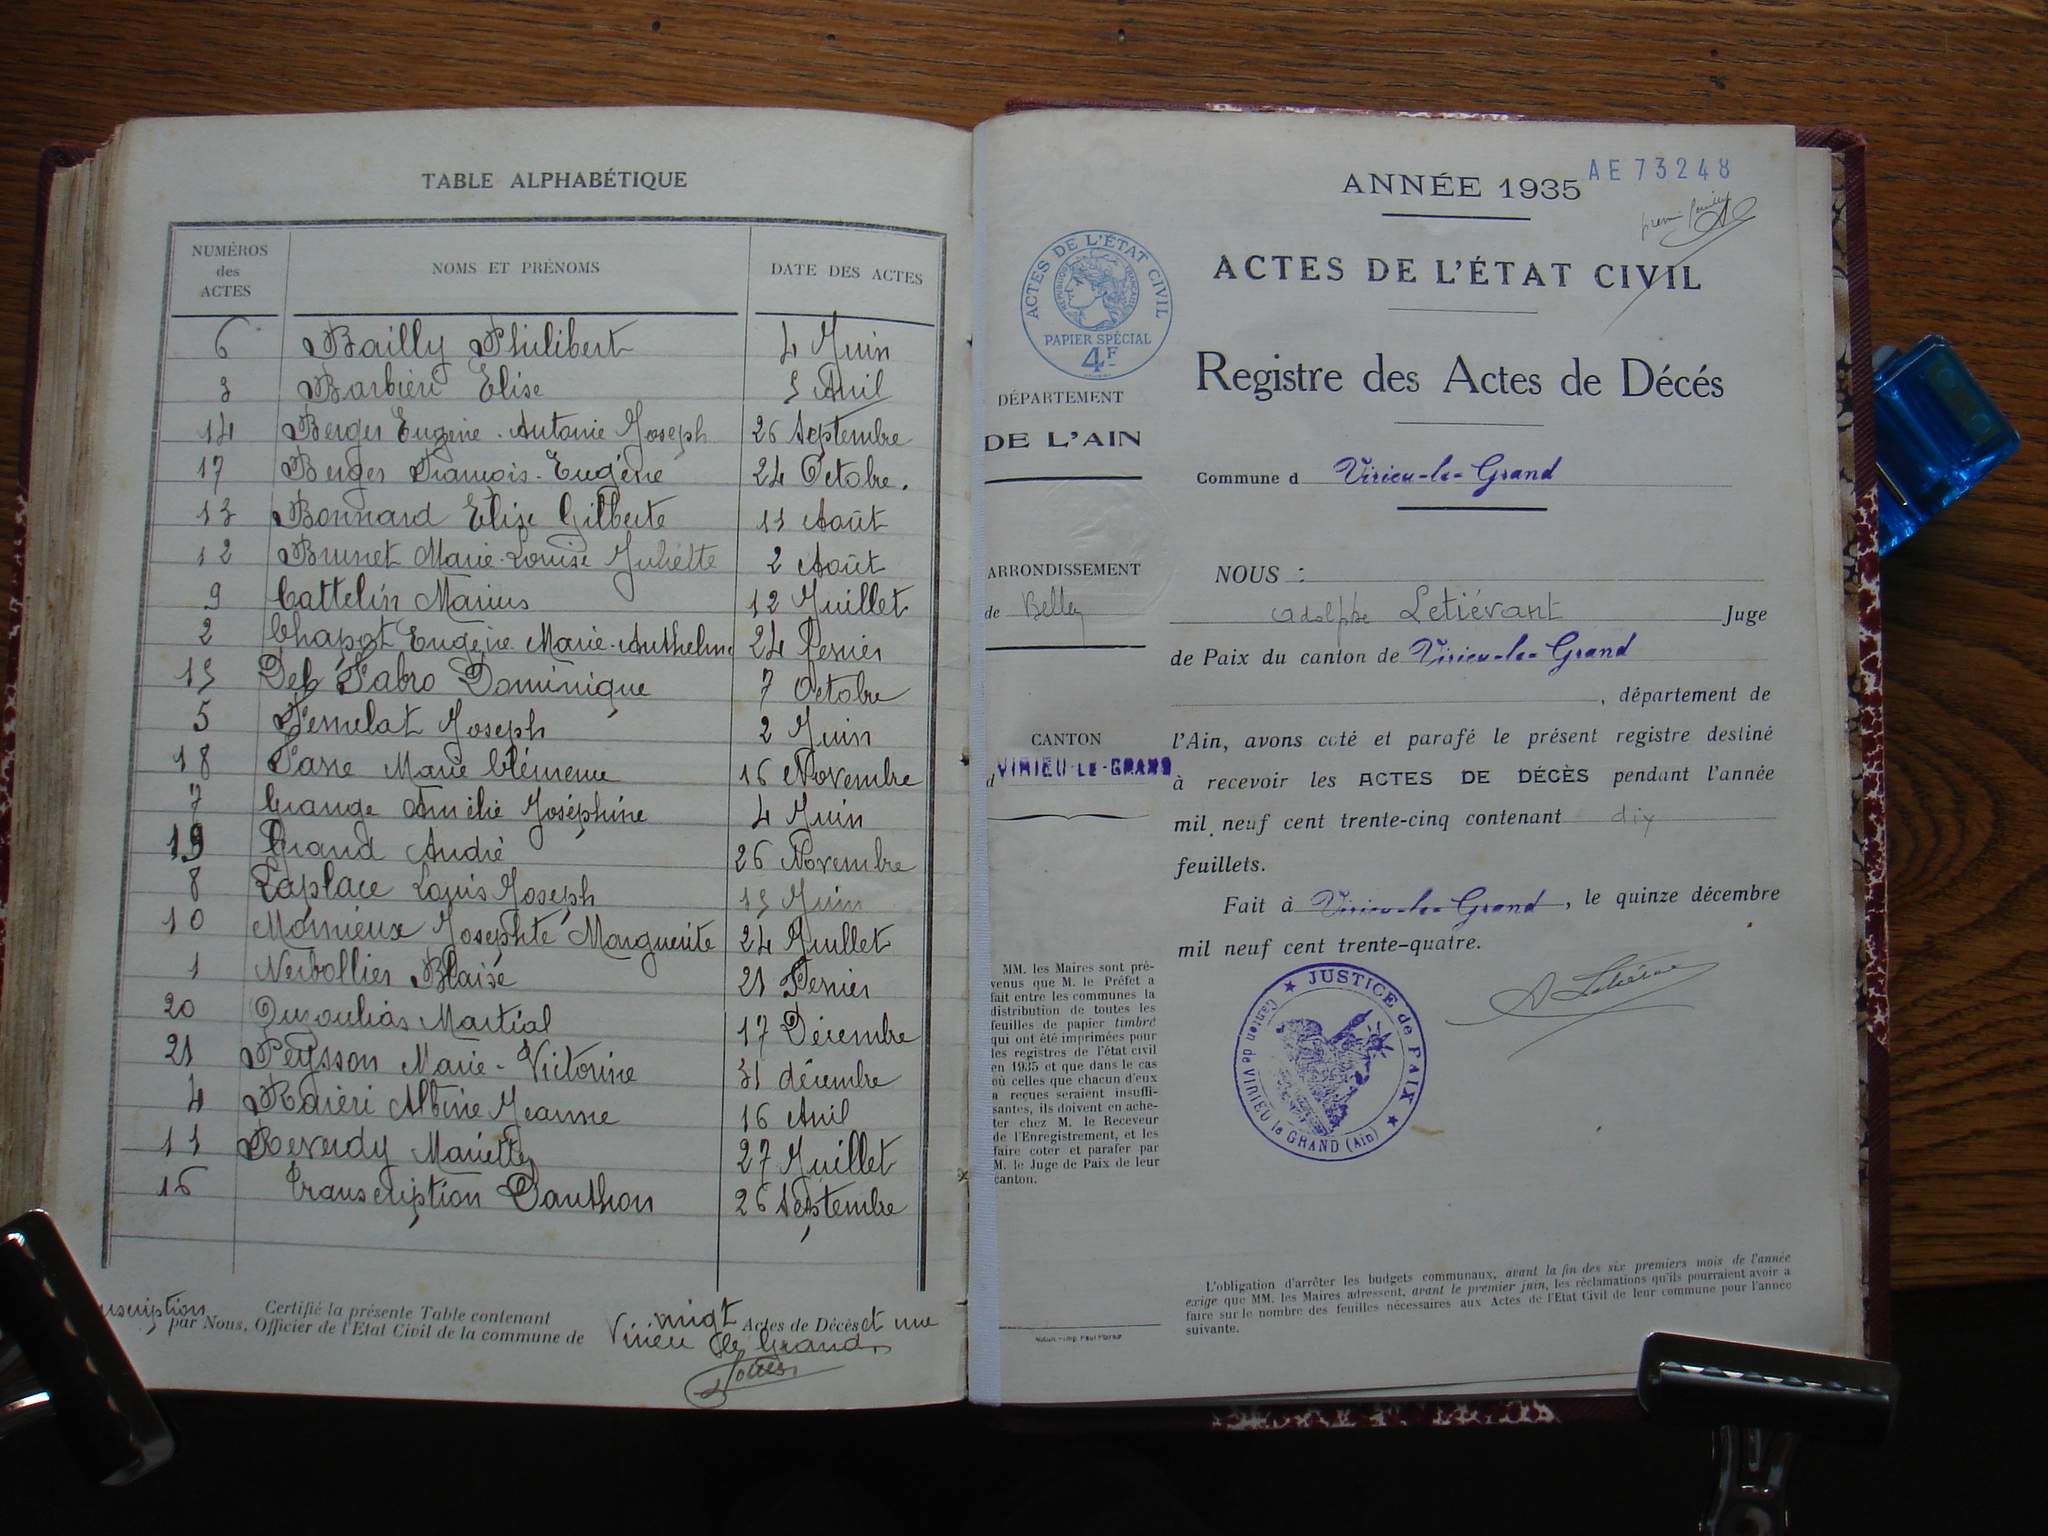 TABLE ALPHABÉTIQUE
NUMÉROS des ACTES NOMS ET PRÉNOMS DATE DES ACTES
6 Bailly Philibert 4 Juin
3 Barbieri Elise 3 Avril
14 Berger Eugène-Antoine Joseph 26 Septembre
17 Berger François-Eugène 24 Octobre.
13 Bonnard Elise Gilberte 11 Août
12 Brunet Marie-Louise Juliette 2 Août
9 Cattelin Marius 12 Juillet
2 Chapot Eugénie Marie-Anthelme 24 Février
15 Del Fabro Dominique 7 Octobre
5 Joseph 2 Juin
18 Marie Clémence 16 Novembre
7 Grange Amélie Joséphine 4 Juin
19 Grand André 26 Novembre
8 Laplace Louis Joseph 15 Juin
10 Mornieux Josephte Marguerite 24 Juillet
1 Nerbollier Blaise 21 Février
20 Ouzoulias Martial 17 Décembre
21 Peysson Marie-Victorine 31 décembre
4 Ravieri Albine Jeanne 16 Avril
11 Reverdy Mariette 27 Juillet
16 Transcription Danthon 26 Septembre
Certifié la présente Table contenant vingt Actes de Décès et une
nscription par Nous, Officier de l'Etat Civil de la commune de Virieu le Grand
ANNÉE 1935
AE 73248
ACTES DE L'ÉTAT CIVIL
RÉPUBLIQUE FRANÇAISE
PAPIER SPÉCIAL
4F
ACTES DE L'ÉTAT CIVIL
Registre des Actes de Décés
DÉPARTEMENT
DE L'AIN
Commune d Virieu-le-Grand
ARRONDISSEMENT
de Belley
NOUS :
Adolphe Letiévant Juge
de Paix du canton de Virieu-le-Grand
, département de
CANTON
d VIRIEU-LE-GRAND
l'Ain, avons coté et parafé le présent registre destiné
à recevoir les ACTES DE DÉCÈS pendant l'année
mil neuf cent trente-cinq contenant dix
feuillets.
Fait à Virieu-le-Grand, le quinze décembre
mil neuf cent trente-quatre.
MM. les Maires sont pré-
venus que M. le Préfet a
fait entre les communes la
distribution de toutes les
feuilles de papier timbré
qui ont été imprimées pour
les registres de l'état civil
en 1935 et que dans le cas
où celles que chacun d'eux
a reçues seraient insuffi-
santes, ils doivent en ache-
ter chez M. le Receveur
de l'Enregistrement, et les
faire coter et parafer par
M. le Juge de Paix de leur
canton.
JUSTICE de PAIX
Canton de VIRIEU le GRAND (Ain)
L'obligation d'arrêter les budgets communaux, avant la fin des six premiers mois de l'année
exige que MM. les Maires adressent, avant le premier juin, les réclamations qu'ils pourraient avoir à
faire sur le nombre des feuilles nécessaires aux Actes de l'Etat Civil de leur commune pour l'année
suivante.